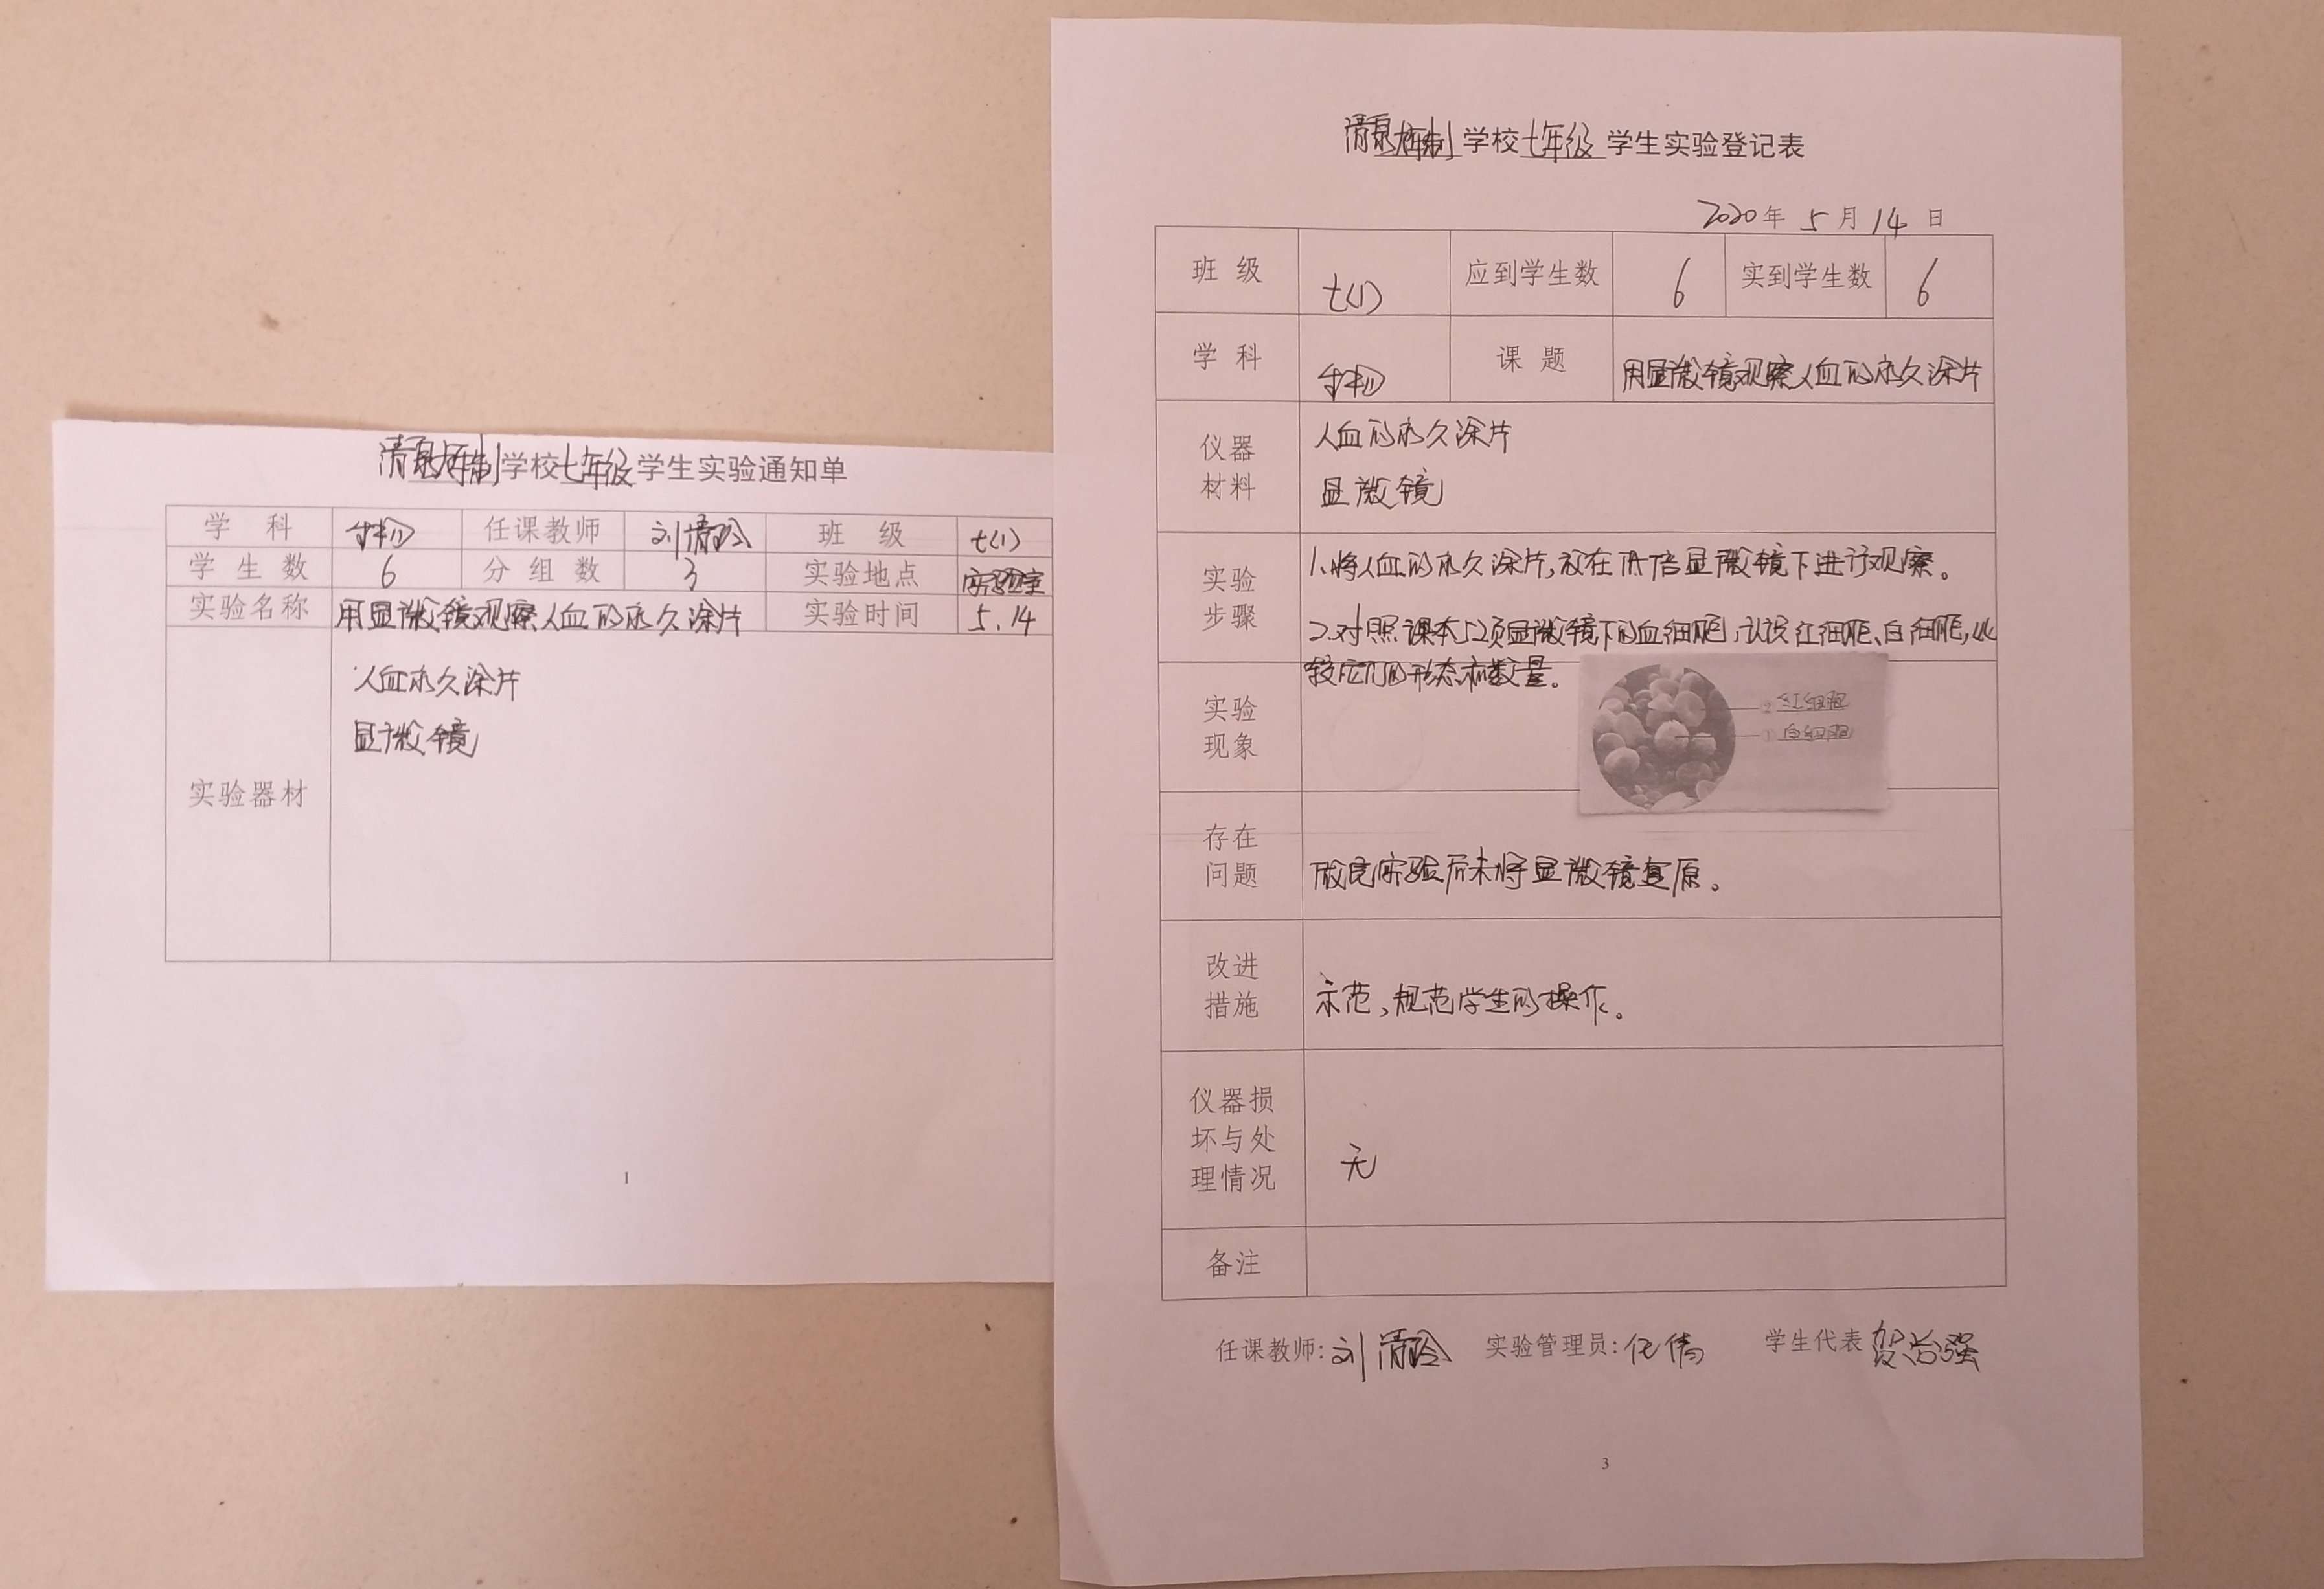 清泉九年制学校七年级学生实验通知单
学 科 生物 任课教师 刘清玲 班 级 七(1)
学生数 6 分组数 3 实验地点 实验室
实验名称 用显微镜观察人血的永久涂片 实验时间 5.14
实验器材
人血永久涂片
显微镜
1
清泉九年制学校七年级学生实验登记表
2020年5月14日
班 级 七(1) 应到学生数 6 实到学生数 6
学 科 生物 课 题 用显微镜观察人血的永久涂片
仪器
材料
人血的永久涂片
显微镜
实验
步骤
1.将人血的永久涂片,放在低倍显微镜下进行观察。
2.对照课本52页显微镜下的血细胞,认识红细胞、白细胞,比
较它们的形态和数量。
实验
现象
② 红细胞
① 白细胞
存在
问题
做完实验后未将显微镜复原。
改进
措施
示范,规范学生的操作。
仪器损
坏与处
理情况
无
备注
任课教师:刘清玲 实验管理员:任倩 学生代表
3